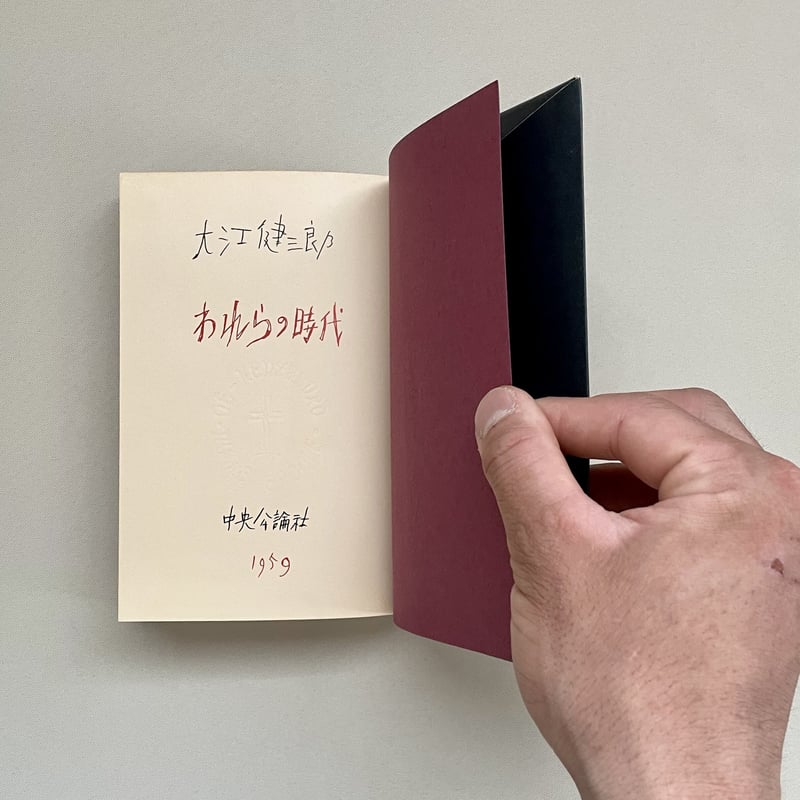 大江健三郎
われらの時代
中央公論社
1959